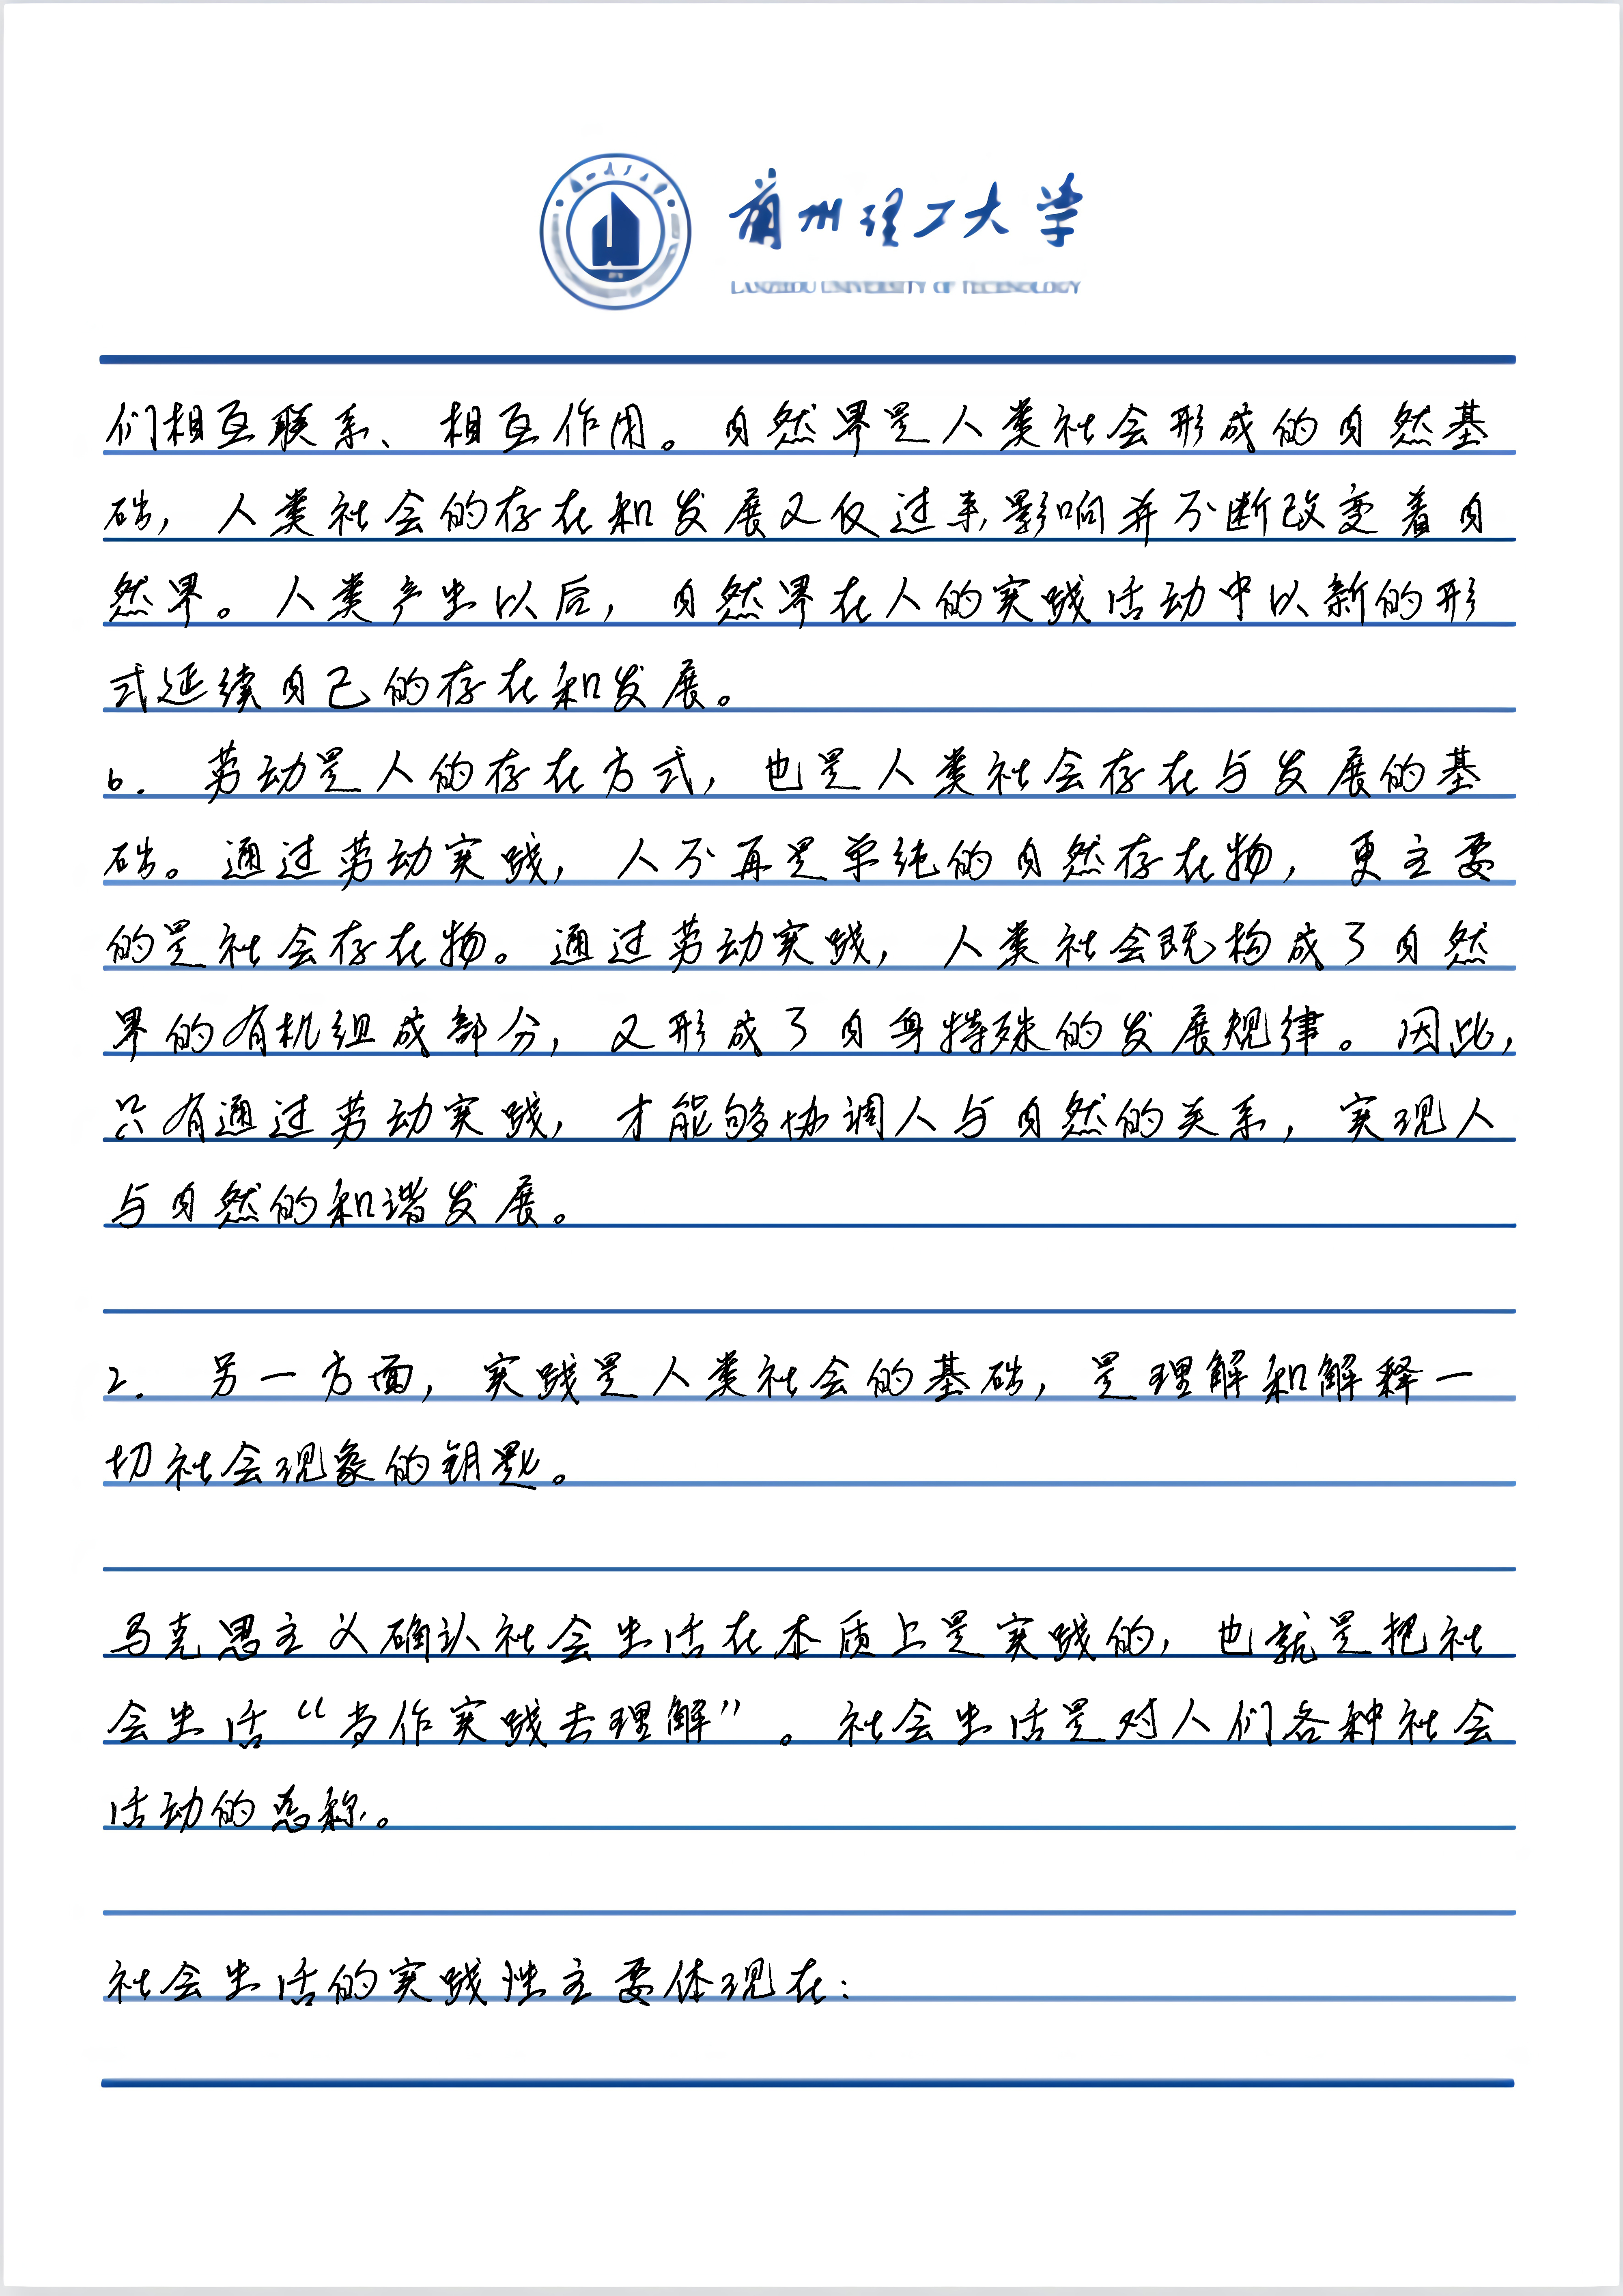 兰州理工大学
LANZHOU UNIVERSITY OF TECHNOLOGY
们相互联系、相互作用。自然界是人类社会形成的自然基
础，人类社会的存在和发展又反过来影响并不断改变着自
然界。人类产生以后，自然界在人的实践活动中以新的形
式延续自己的存在和发展。
b. 劳动是人的存在方式，也是人类社会存在与发展的基
础。通过劳动实践，人不再是单纯的自然存在物，更主要
的是社会存在物。通过劳动实践，人类社会既构成了自然
界的有机组成部分，又形成了自身特殊的发展规律。因此，
只有通过劳动实践，才能够协调人与自然的关系，实现人
与自然的和谐发展。
2. 另一方面，实践是人类社会的基础，是理解和解释一
切社会现象的钥匙。
马克思主义确认社会生活在本质上是实践的，也就是把社
会生活“当作实践去理解”。社会生活是对人们各种社会
活动的总称。
社会生活的实践性主要体现在：